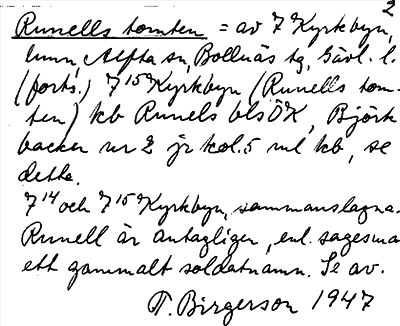 2
Runells tomten = av 7 Kyrkbyn,
Alfta sn, Bollnäs tg, Gävl. l.
(forts.) 7¹⁵ Kyrkbyn (Runells tom-
ten) kb Runels bls ÖK, Björk
backen nr 2 jr kol. 5 ml kb, se
detta.
7¹⁴ och 7¹⁵ Kyrkbyn, sammanslagna.
Runell är antagligen, enl. sagesma
ett gammalt soldatnamn. Se av.
T. Birgerson 1947